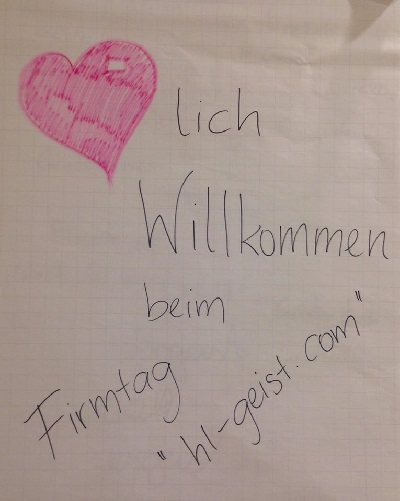 lich
Willkommen
beim
Firmtag
"hl-geist.com"